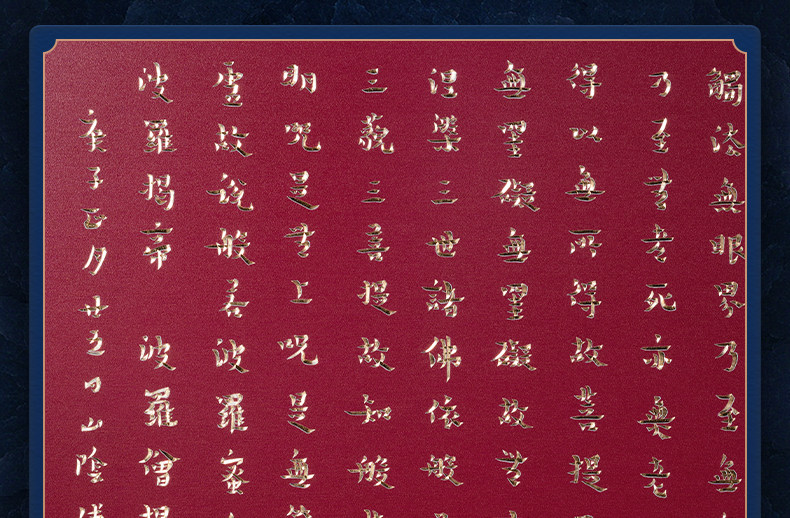 觸法無眼界乃至無
乃至無老死亦無老
得以無所得故菩提
無罣礙無罣礙故無
涅槃三世諸佛依般
三藐三菩提故知般
明咒是無上咒是無
虛故說般若波羅蜜
波羅揭帝 波羅僧揭
庚子正月廿五日山陰